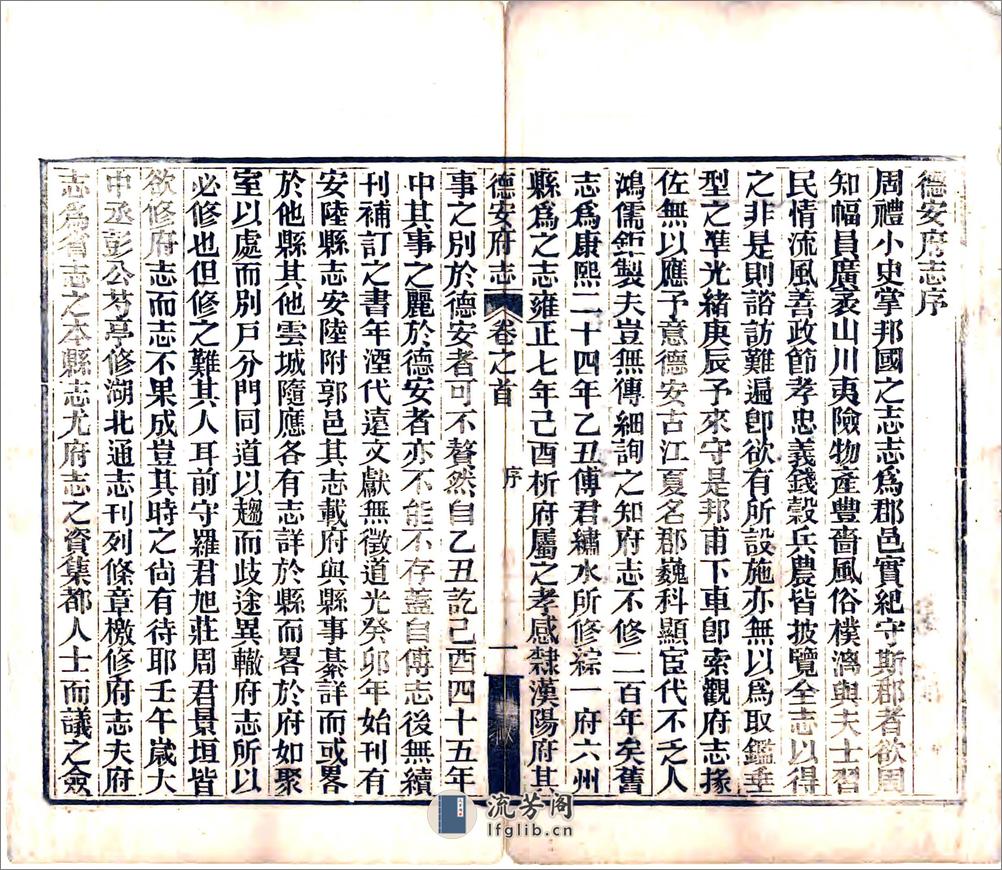 德安府志序
周禮小史掌邦國之志志爲郡邑實紀守斯郡者欲周
知幅員廣袤山川夷險物產豐嗇風俗樸漓與夫士習
民情流風善政節孝忠義錢穀兵農皆披覽全志以得
之非是則諮訪難遍卽欲有所設施亦無以爲取鑑垂
型之準光緒庚辰予來守是邦甫下車卽索觀府志掾
佐無以應予意德安古江夏名郡巍科顯宦代不乏人
鴻儒鉅製夫豈無傳細詢之知府志不修二百年矣舊
志爲康熙二十四年乙丑傅君繡水所修綜一府六州
縣爲之志雍正七年己酉析府屬之孝感隸漢陽府其
德安府志 卷之首 序 一
事之別於德安者可不贅然自乙丑訖己酉四十五年
中其事之麗於德安者亦不能不存蓋自傅志後無續
刊補訂之書年湮代遠文獻無徵道光癸卯年始刊有
安陸縣志安陸附郭邑其志載府與縣事綦詳而或畧
於他縣其他雲城隨應各有志詳於縣而畧於府如聚
室以處而別戶分門同道以趨而歧途異轍府志所以
必修也但修之難其人耳前守羅君旭莊周君景垣皆
欲修府志而志不果成豈其時之尚有待耶壬午歲大
中丞彭公芍亭修湖北通志刊列條章檄修府志夫府
志爲省志之本縣志尤府志之資集都人士而議之僉
流芳阁
lfglib.cn